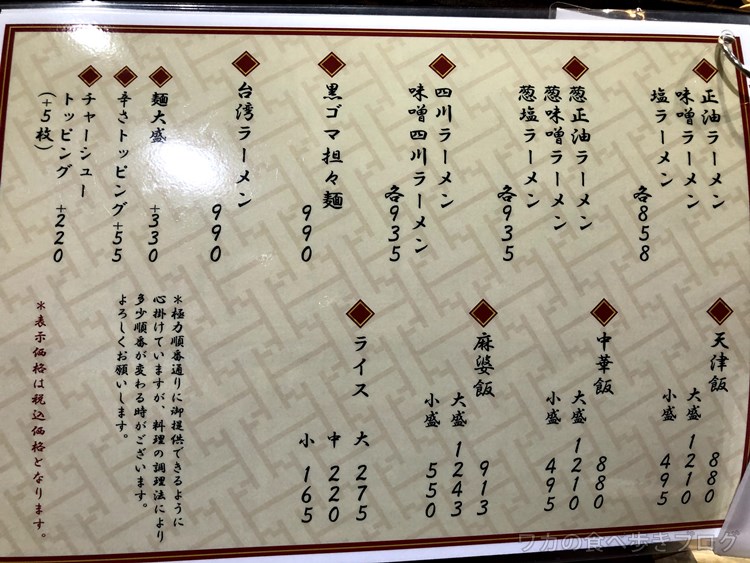 正油ラーメン
味噌ラーメン
塩ラーメン
各858
葱正油ラーメン
葱味噌ラーメン
葱塩ラーメン
各935
四川ラーメン
味噌四川ラーメン
各935
黒ゴマ担々麺
990
台湾ラーメン
990
麺大盛 +330
辛さトッピング +55
チャーシュー
トッピング +220
(+5枚)
天津飯 880
大盛 1210
小盛 495
中華飯 880
大盛 1210
小盛 495
麻婆飯 913
大盛 1243
小盛 550
ライス
大 275
中 220
小 165
*極力順番通りに御提供できるように
心掛けていますが、料理の調理法により
多少順番が変わる時がございます。
よろしくお願いします。
*表示価格は税込価格となります。
ワカの食べ歩きブログ